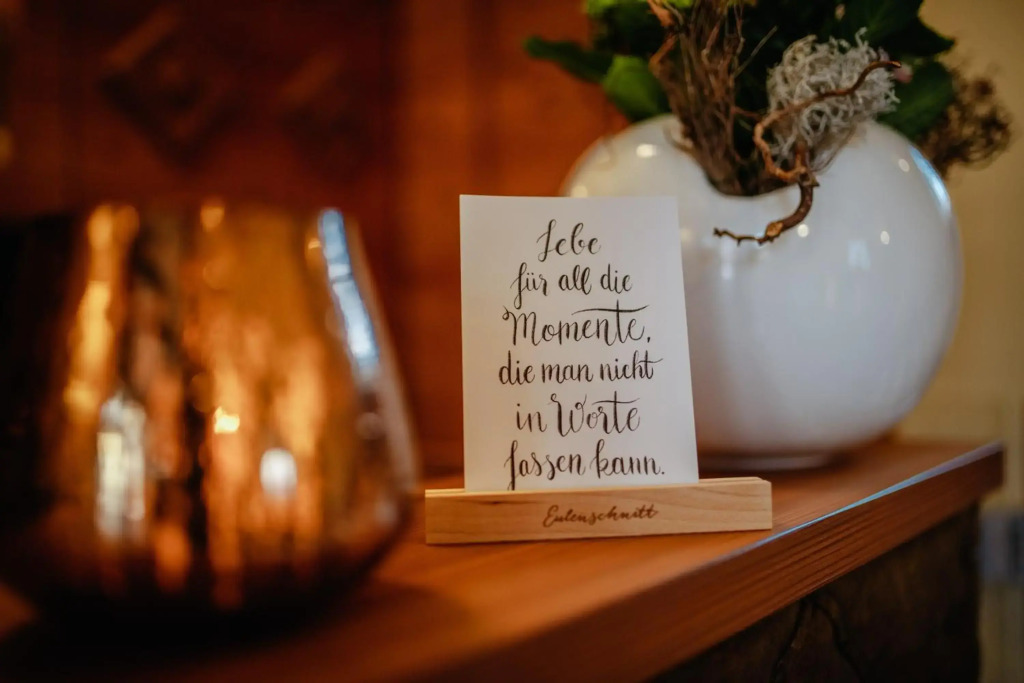 Lebe
für all die
Momente,
die man nicht
in Worte
fassen kann.
Eulenschnitt